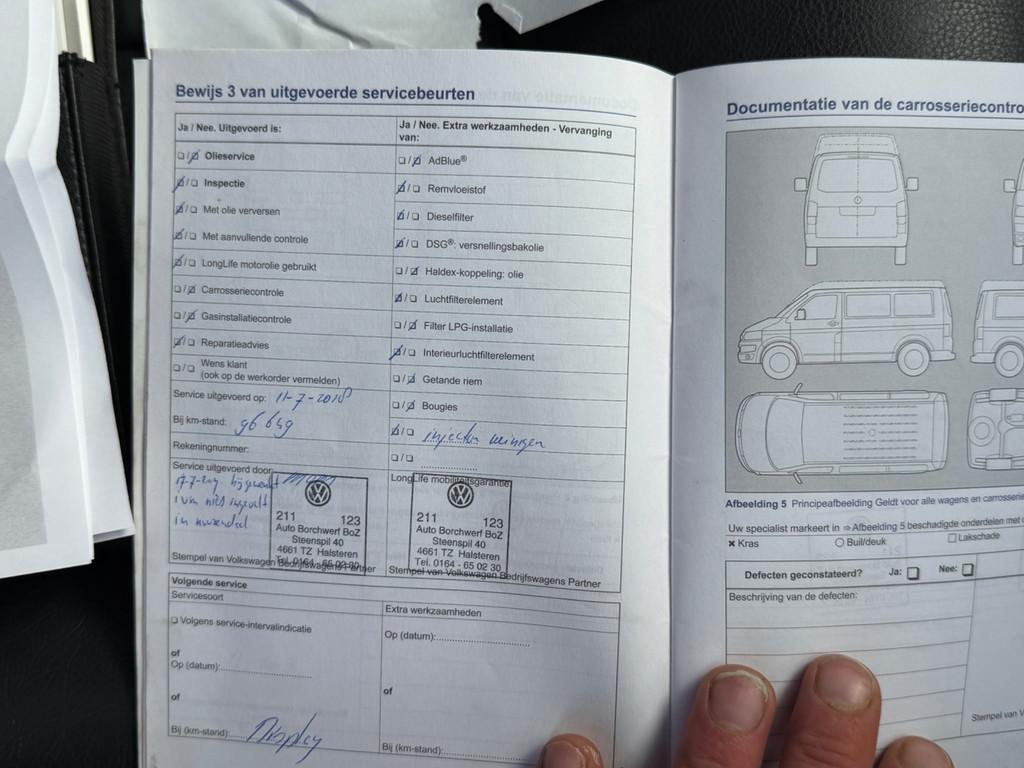 Bewijs 3 van uitgevoerde servicebeurten
Ja / Nee. Uitgevoerd is:
Ja / Nee. Extra werkzaamheden - Vervanging van:
☐/☑ Olieservice
☑/☐ Inspectie
☑/☐ Met olie verversen
☑/☐ Met aanvullende controle
☑/☐ LongLife motorolie gebruikt
☐/☑ Carrosseriecontrole
☐/☑ Gasinstallatiecontrole
☑/☐ Reparatieadvies
☐/☐ Wens klant
(ook op de werkorder vermelden)
Service uitgevoerd op: 11-7-2018
Bij km-stand: 96 649
Rekeningnummer:
Service uitgevoerd door:
☐/☑ AdBlue®
☑/☐ Remvloeistof
☑/☐ Dieselfilter
☑/☐ DSG®: versnellingsbakolie
☐/☑ Haldex-koppeling: olie
☑/☐ Luchtfilterelement
☐/☑ Filter LPG-installatie
☑/☐ Interieurluchtfilterelement
☐/☑ Getande riem
☐/☑ Bougies
☑/☐ injector reinigen
☐/☐
LongLife mobiliteitsgarantie
211 123
Auto Borchwerf BoZ
Steenspil 40
4661 TZ Halsteren
Tel. 0164 - 65 02 30
Stempel van Volkswagen Bedrijfswagens Partner
211 123
Auto Borchwerf BoZ
Steenspil 40
4661 TZ Halsteren
Tel. 0164 - 65 02 30
Stempel van Volkswagen Bedrijfswagens Partner
Volgende service
Servicesoort
☐ Volgens service-intervalindicatie
of
Op (datum):
of
Bij (km-stand): Display
Extra werkzaamheden
Op (datum):
of
Bij (km-stand):
Documentatie van de carrosseriecontro
Afbeelding 5 Principeafbeelding Geldt voor alle wagens en carrosserie
Uw specialist markeert in ⇒ Afbeelding 5 beschadigde onderdelen met
× Kras ○ Buil/deuk ☐ Lakschade
Defecten geconstateerd? Ja: ☐ Nee: ☐
Beschrijving van de defecten:
Stempel van V